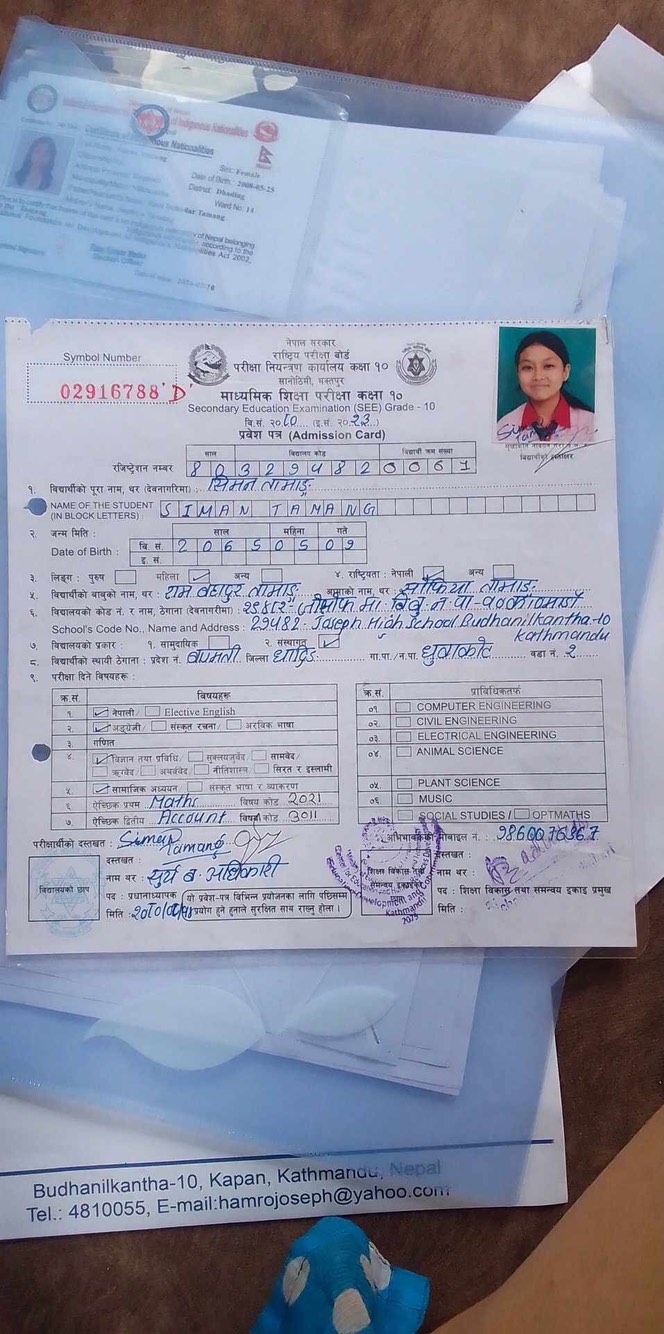 of Indigenous Nationalities
Sex: Female
Date of Birth: 2008-05-25
District: Dhading
Ward No. 14
Tamang
of Nepal belonging
according to the
Act 2002,
नेपाल सरकार
राष्ट्रिय परीक्षा बोर्ड
परीक्षा नियन्त्रण कार्यालय कक्षा १०
सानोठिमी, भक्तपुर
Symbol Number
02916788 'D'
माध्यमिक शिक्षा परीक्षा कक्षा १०
Secondary Education Examination (SEE) Grade - 10
बि.सं. २०८० (इ.सं. २०२३)
प्रवेश पत्र (Admission Card)
साल विद्यालय कोड विद्यार्थी क्रम संख्या
रजिष्ट्रेशन नम्बर 8 0 3 2 9 4 8 2 0 0 6 1
Siman Tamang
१. विद्यार्थीको पूरा नाम, थर (देवनागरिमा) : सिमन तामाङ्ग
NAME OF THE STUDENT (IN BLOCK LETTERS) : SIMAN TAMANG
२. जन्म मिति : साल महिना गते
Date of Birth : बि. सं. 2 0 6 5 0 5 0 9
इ. सं.
३. लिङ्ग : पुरुष महिला अन्य ४. राष्ट्रियता : नेपाली अन्य
५. विद्यार्थीको बाबुको नाम, थर : राम बहादुर तामाङ्ग आमाको नाम, थर : सोफिया तामाङ्ग
६. विद्यालयको कोड नं. र नाम, ठेगाना (देवनागरीमा) :
School's Code No., Name and Address : 29482- Joseph High School Budhanilkantha-10
kathmandu
७. विद्यालयको प्रकार : १. सामुदायिक २. संस्थागत
८. विद्यार्थीको स्थायी ठेगाना : प्रदेश नं. बागमती जिल्ला धादिङ गा.पा./न.पा. धुवाकोट वडा नं. २
९. परीक्षा दिने विषयहरू :
क्र.सं. विषयहरू
१. नेपाली/ Elective English
२. अङ्ग्रेजी/ संस्कृत रचना/ अरविक भाषा
३. गणित
४. विज्ञान तथा प्रविधि/ शुक्लयजुर्वेद सामवेद/
ऋग्वेद/ अथर्ववेद नीतिशास्त्र सिरत र इस्लामी
५. सामाजिक अध्ययन/ संस्कृत भाषा र व्याकरण
६ ऐच्छिक प्रथम Maths विषय कोड 2021
७. ऐच्छिक द्वितीय Account विषय कोड 3011
क्र.सं. प्राविधिकतर्फ
०१ COMPUTER ENGINEERING
०२. CIVIL ENGINEERING
०३. ELECTRICAL ENGINEERING
०४. ANIMAL SCIENCE
०५. PLANT SCIENCE
०६. MUSIC
SOCIAL STUDIES / OPTMATHS
परीक्षार्थीको दस्तखत : Siman Tamang
अभिभावकको मोबाइल नं. : 9860076367
दस्तखत :
नाम थर : सुर्य ब. अधिकारी
पद : प्रधानाध्यापक
मिति :
विद्यालयको छाप
यो प्रवेश-पत्र विभिन्न प्रयोजनका लागि पछिसम्म
प्रयोग हुने हुनाले सुरक्षित साथ राख्नु होला ।
शिक्षा विकास तथा
समन्वय इकाइको
Kathmandu
2075
दस्तखत :
नाम थर :
पद : शिक्षा विकास तथा समन्वय इकाइ प्रमुख
मिति :
Budhanilkantha-10, Kapan, Kathmandu, Nepal
Tel.: 4810055, E-mail:hamrojoseph@yahoo.com